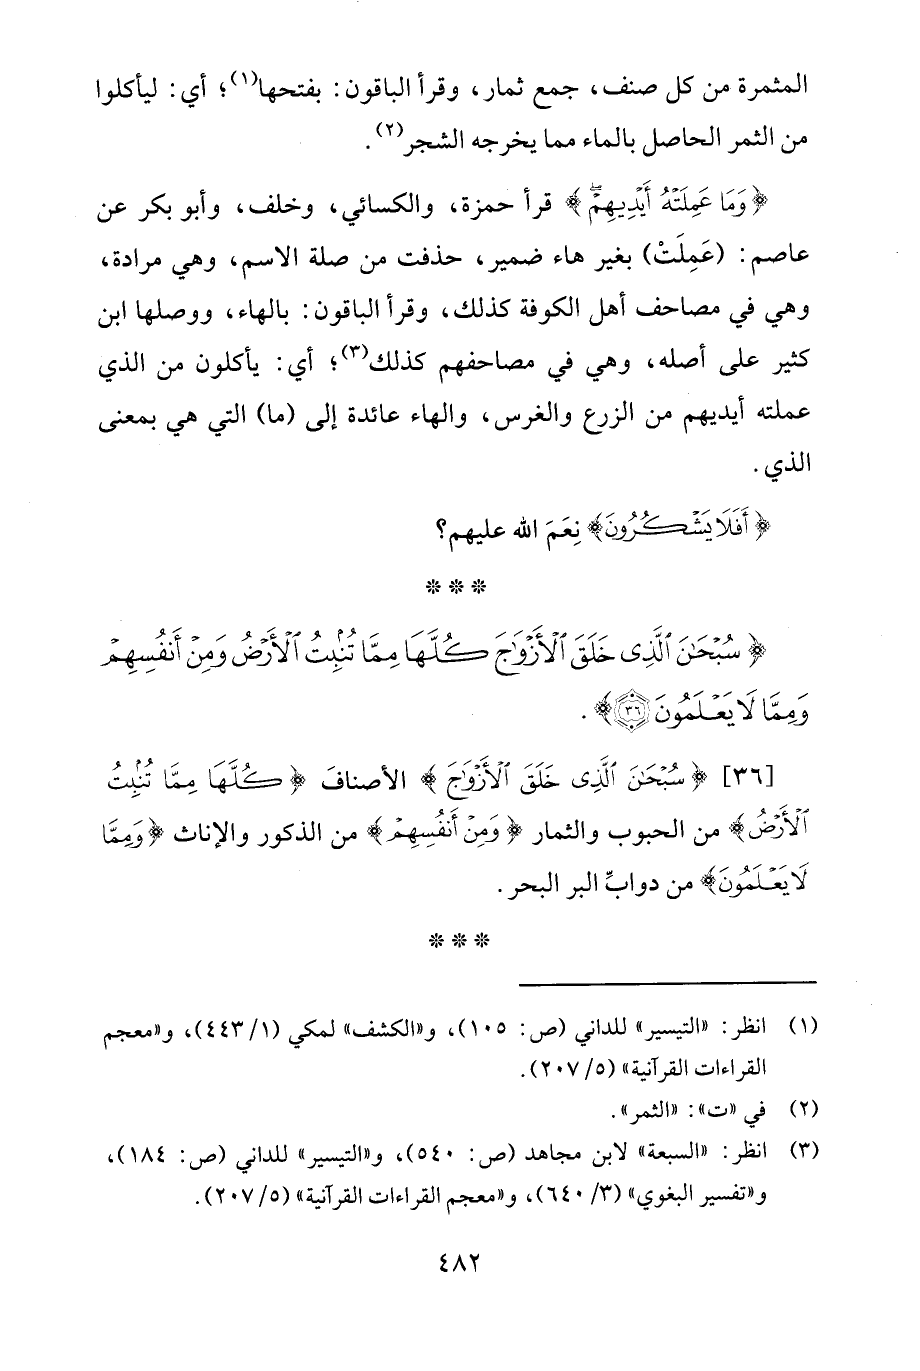 المثمرة من كل صنف، جمع ثمار، وقرأ الباقون: بفتحها(١)؛ أي: ليأكلوا
من الثمر الحاصل بالماء مما يخرجه الشجر(٢).
﴿وَمَا عَمِلَتْهُ أَيْدِيهِمْ ۖ﴾ قرأ حمزة، والكسائي، وخلف، وأبو بكر عن
عاصم: (عَمِلَتْ) بغير هاء ضمير، حذفت من صلة الاسم، وهي مرادة،
وهي في مصاحف أهل الكوفة كذلك، وقرأ الباقون: بالهاء، ووصلها ابن
كثير على أصله، وهي في مصاحفهم كذلك(٣)؛ أي: يأكلون من الذي
عملته أيديهم من الزرع والغرس، والهاء عائدة إلى (ما) التي هي بمعنى
الذي.
﴿أَفَلَا يَشْكُرُونَ﴾ نِعَمَ الله عليهم؟
***
﴿سُبْحَٰنَ ٱلَّذِى خَلَقَ ٱلْأَزْوَٰجَ كُلَّهَا مِمَّا تُنۢبِتُ ٱلْأَرْضُ وَمِنْ أَنفُسِهِمْ
وَمِمَّا لَا يَعْلَمُونَ ٣٦﴾.
[٣٦] ﴿سُبْحَٰنَ ٱلَّذِى خَلَقَ ٱلْأَزْوَٰجَ﴾ الأصنافَ ﴿كُلَّهَا مِمَّا تُنۢبِتُ
ٱلْأَرْضُ﴾ من الحبوب والثمار ﴿وَمِنْ أَنفُسِهِمْ﴾ من الذكور والإناث ﴿وَمِمَّا
لَا يَعْلَمُونَ﴾ من دوابِّ البر البحر.
***
(١) انظر: «التيسير» للداني (ص: ١٠٥)، و«الكشف» لمكي (١/ ٤٤٣)، و«معجم
القراءات القرآنية» (٥/ ٢٠٧).
(٢) في «ت»: «الثمر».
(٣) انظر: «السبعة» لابن مجاهد (ص: ٥٤٠)، و«التيسير» للداني (ص: ١٨٤)،
و«تفسير البغوي» (٣/ ٦٤٠)، و«معجم القراءات القرآنية» (٥/ ٢٠٧).
٤٨٢